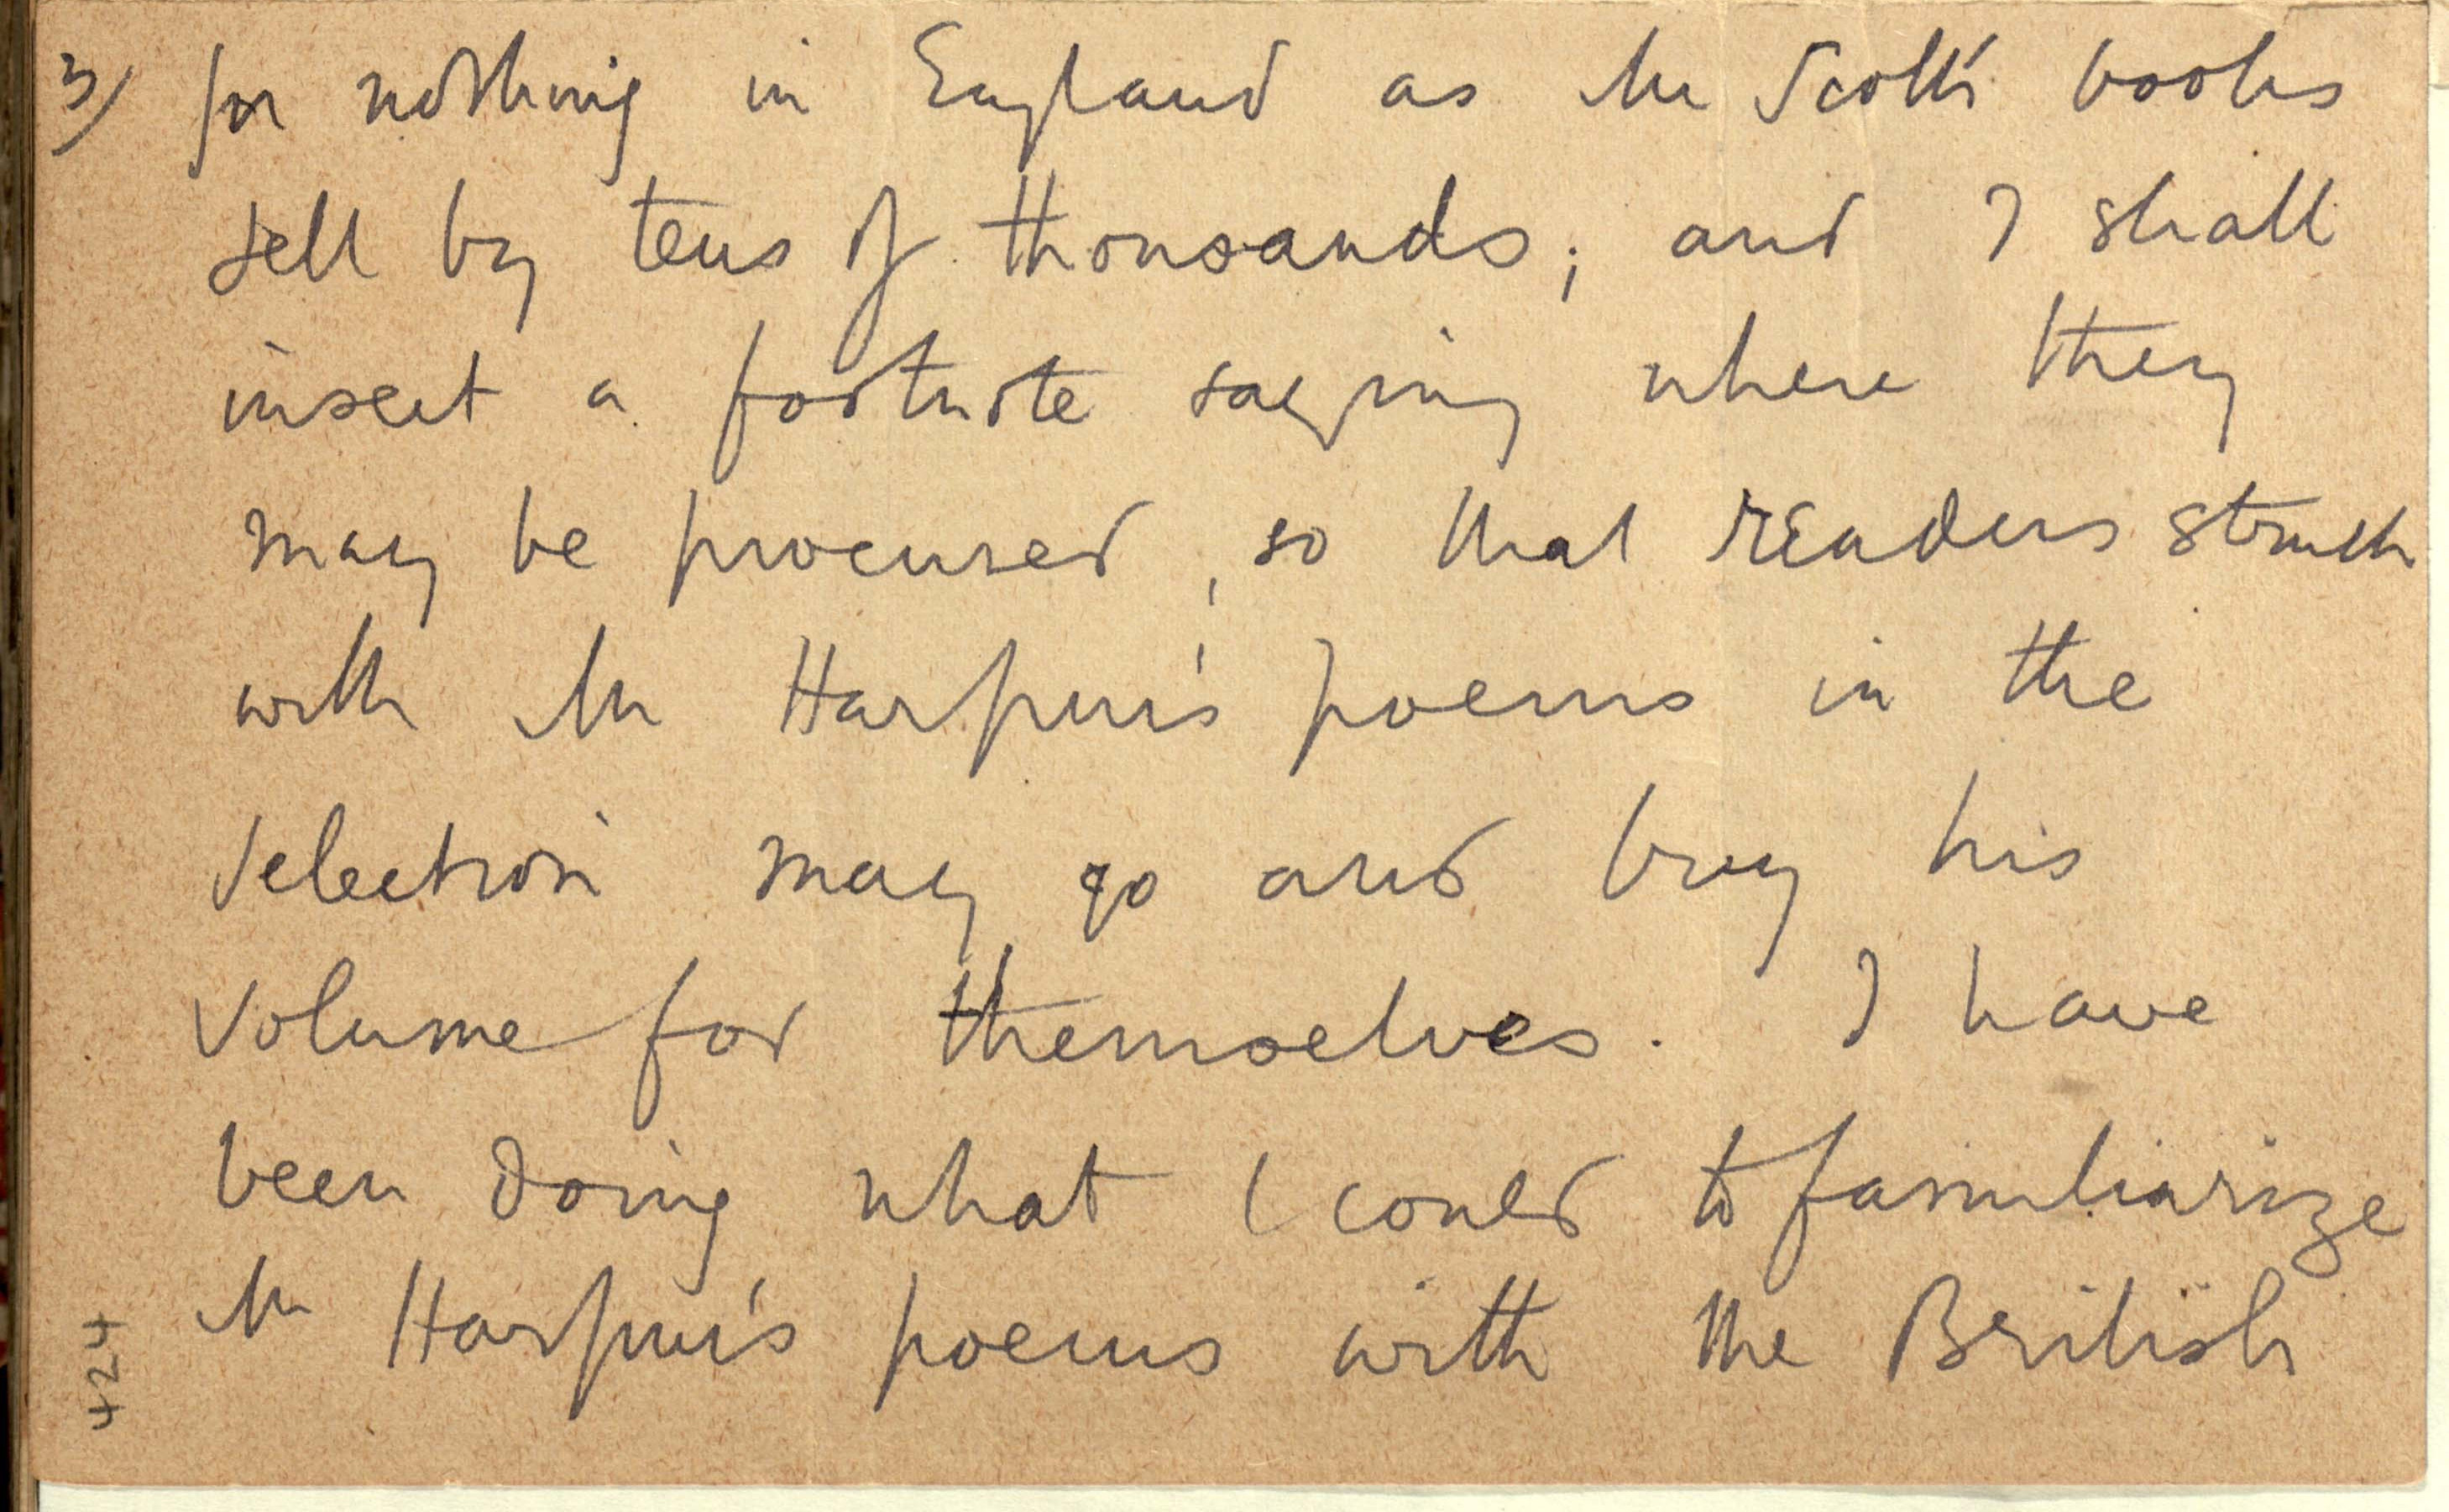 3/ for nothing in England as Mr Scott's books
sell by tens of thousands; and I shall
insert a footnote saying where they
may be procured, so that readers struck
with Mr Harpur's poems in the
selection may go and buy his
volume for themselves. I have
been doing what I could to familiarize
Mr Harpur's poems with the British
424